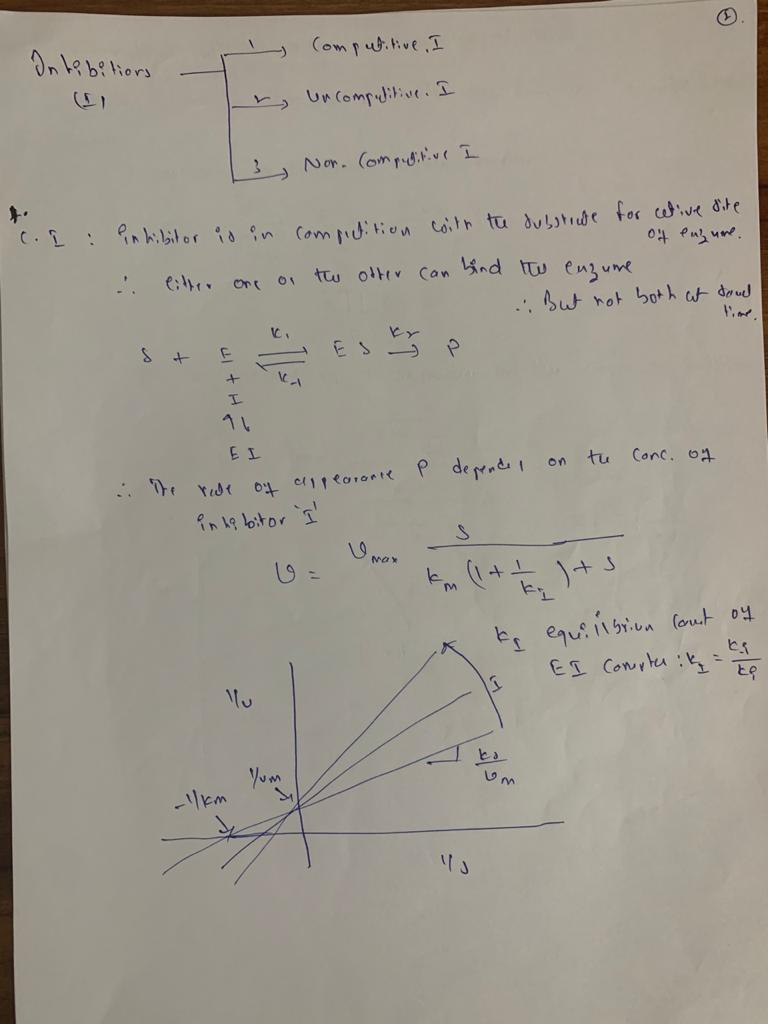 ①.
Inhibitiors
(I)
1 Competitive. I
2 Uncompetitive. I
3 Non-Competitive I
1.
C. I : inhibitor is in competition with the substrate for active site of enzyme.
∴ Either one or the other can bind the enzyme
∴ But not both at same time.
S + E ⇌ ES → P
K1 K-1 K2
+
I
↑↓
EI
∴ The rate of appearance P depends on the conc. of
inhibitor 'I'
V = Vmax S / Km (1 + I/KI) + S
KI equilibrium const of
EI Complex : KI = K-i/Ki
1/v
I
Ks/Vm
1/vm
-1/Km
1/s